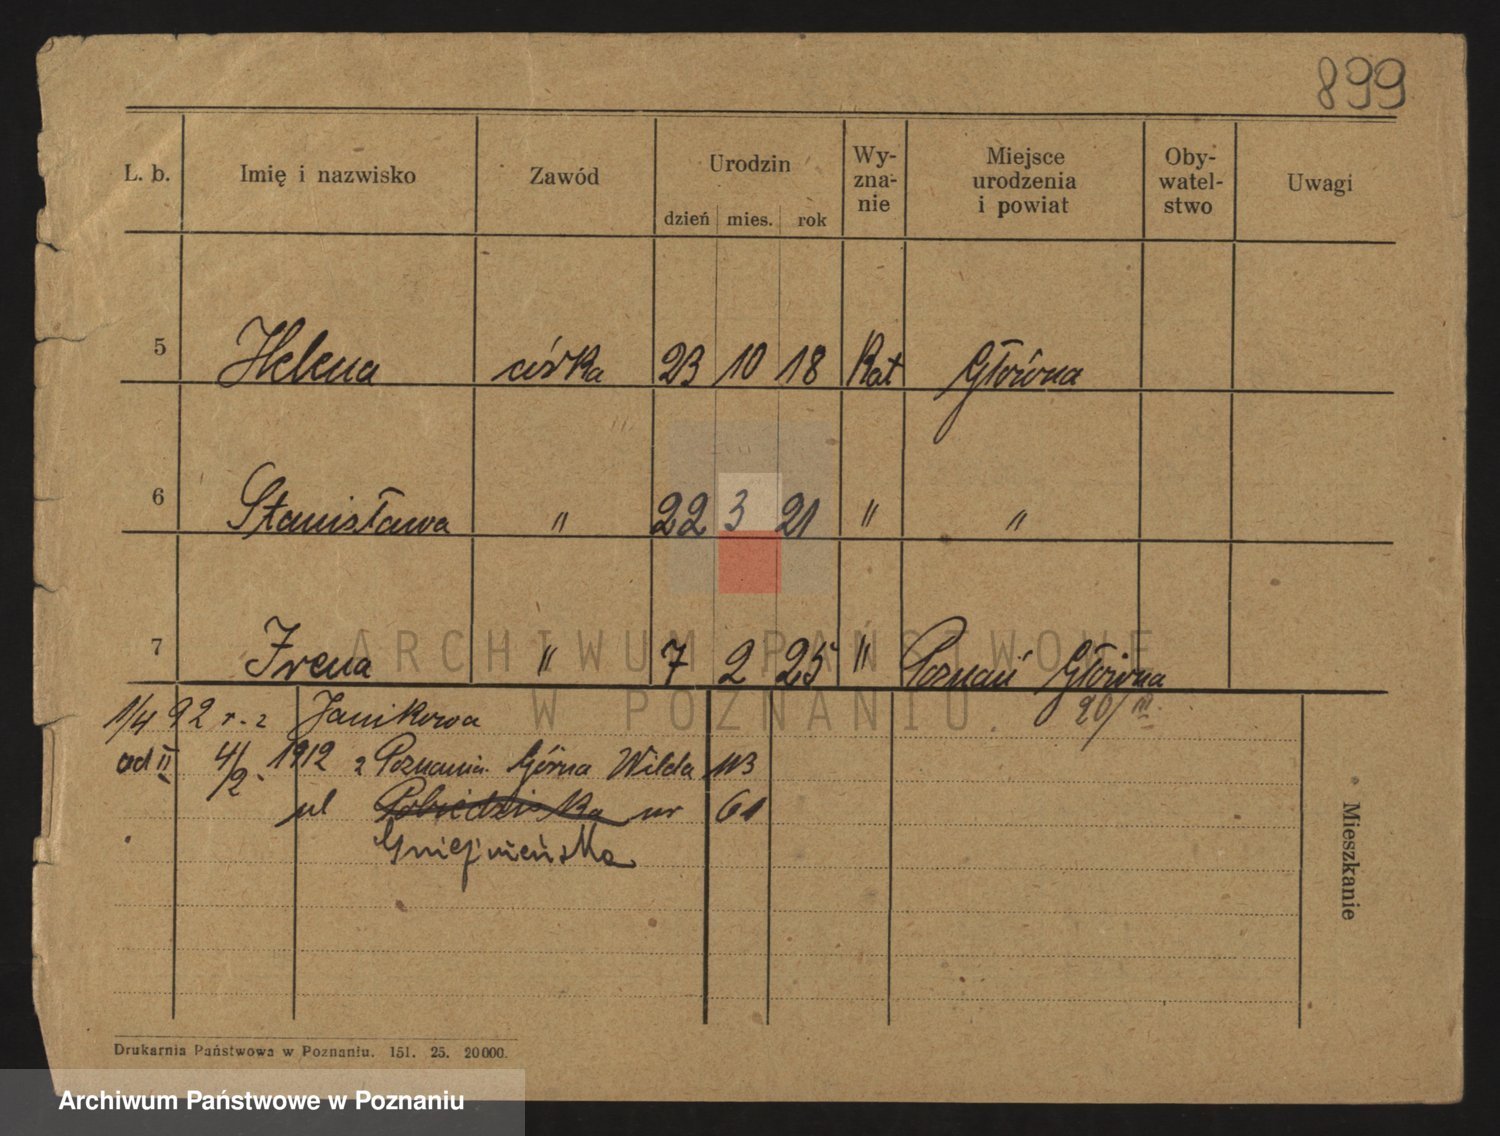 899
L. b. Imię i nazwisko Zawód Urodzin dzień mies. rok Wy-zna-nie Miejsce urodzenia i powiat Oby-watel-stwo Uwagi
5 Helena córka 23 10 18 Kat Główna
6 Stanisława " 22 3 21 " "
7 Irena " 7 2 25 " Poznań Główna
ARCHIWUM PAŃSTWOWE
W POZNANIU.
1/4 92 r. z Janikowa 20/III
od II 4/2. 1912 z Poznania. Górna Wilda 113
ul Pobiedziska nr 61
Gnieźnieńska
Mieszkanie
Drukarnia Państwowa w Poznaniu. 151. 25. 20 000.
Archiwum Państwowe w Poznaniu